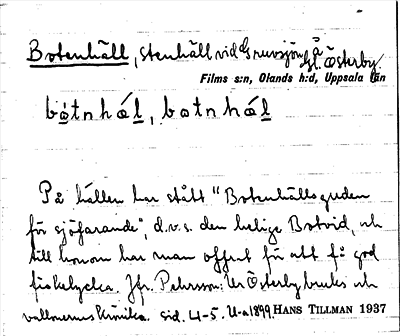 Botenhäll, stenhäll vid Gruvsjön å
Gl. Österby.
Films s:n, Olands h:d, Uppsala län
bòtnhál, botnhál
På hällen har stått "Botenhällsguden
för sjöfarande", d.v.s. den helige Botvid, och
till honom har man offrat för att få god
fiskelycka. Jfr. Pehrsson: Ur Österby bruks och
vallonernas krönika. sid. 4-5. U-a 1899. HANS TILLMAN 1937